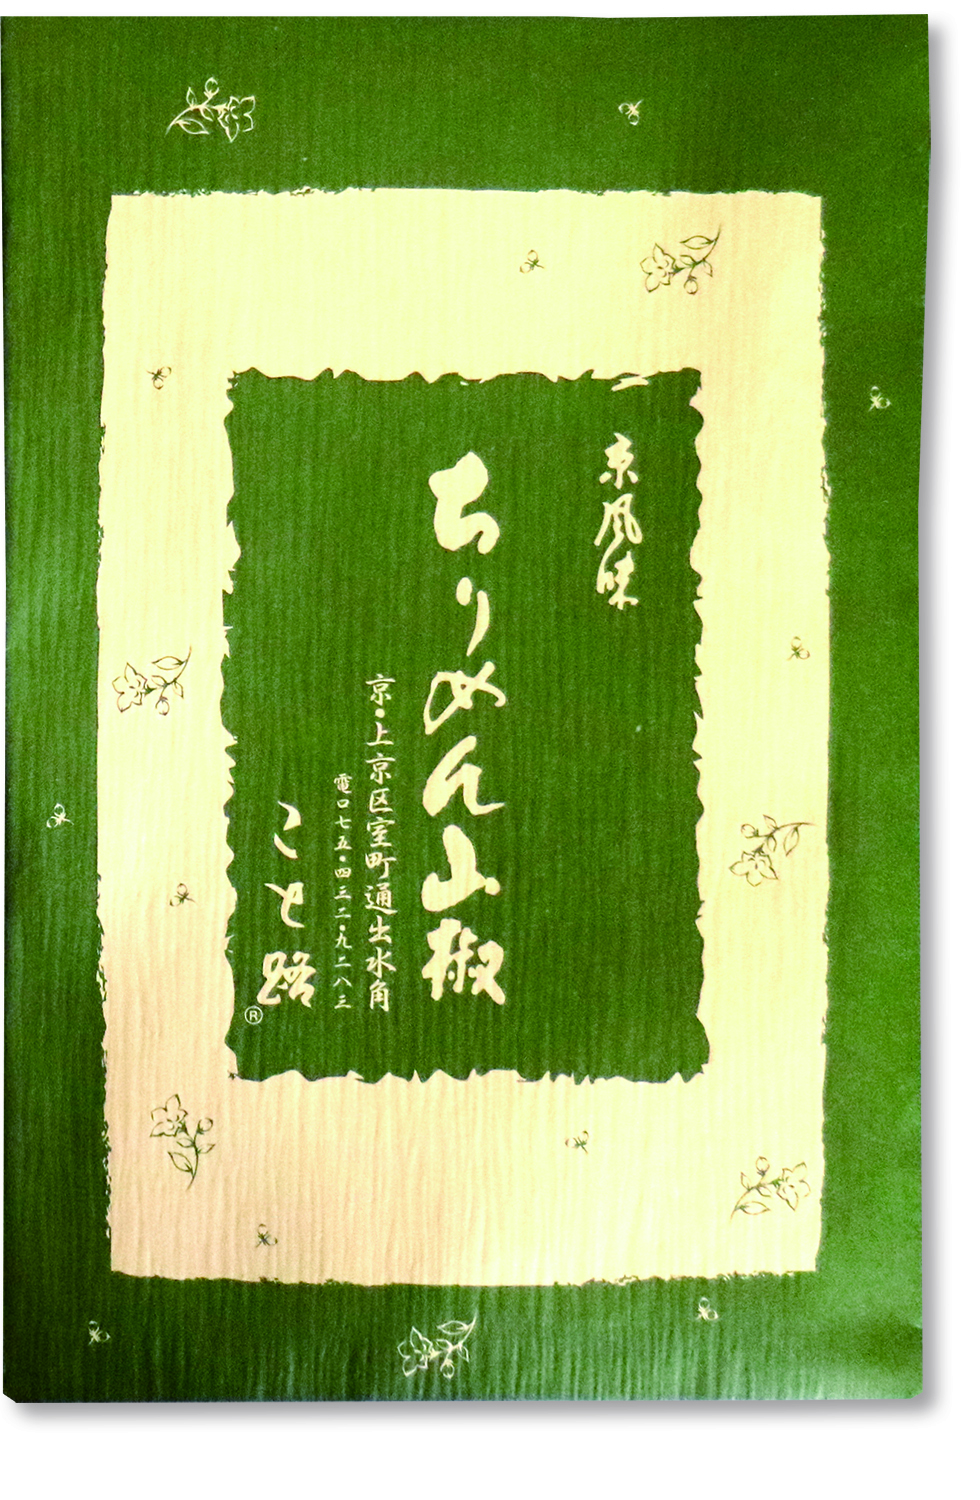 京風味
ちりめん山椒
京・上京区室町通出水角
電〇七五・四三二・九二八三
こと路
®